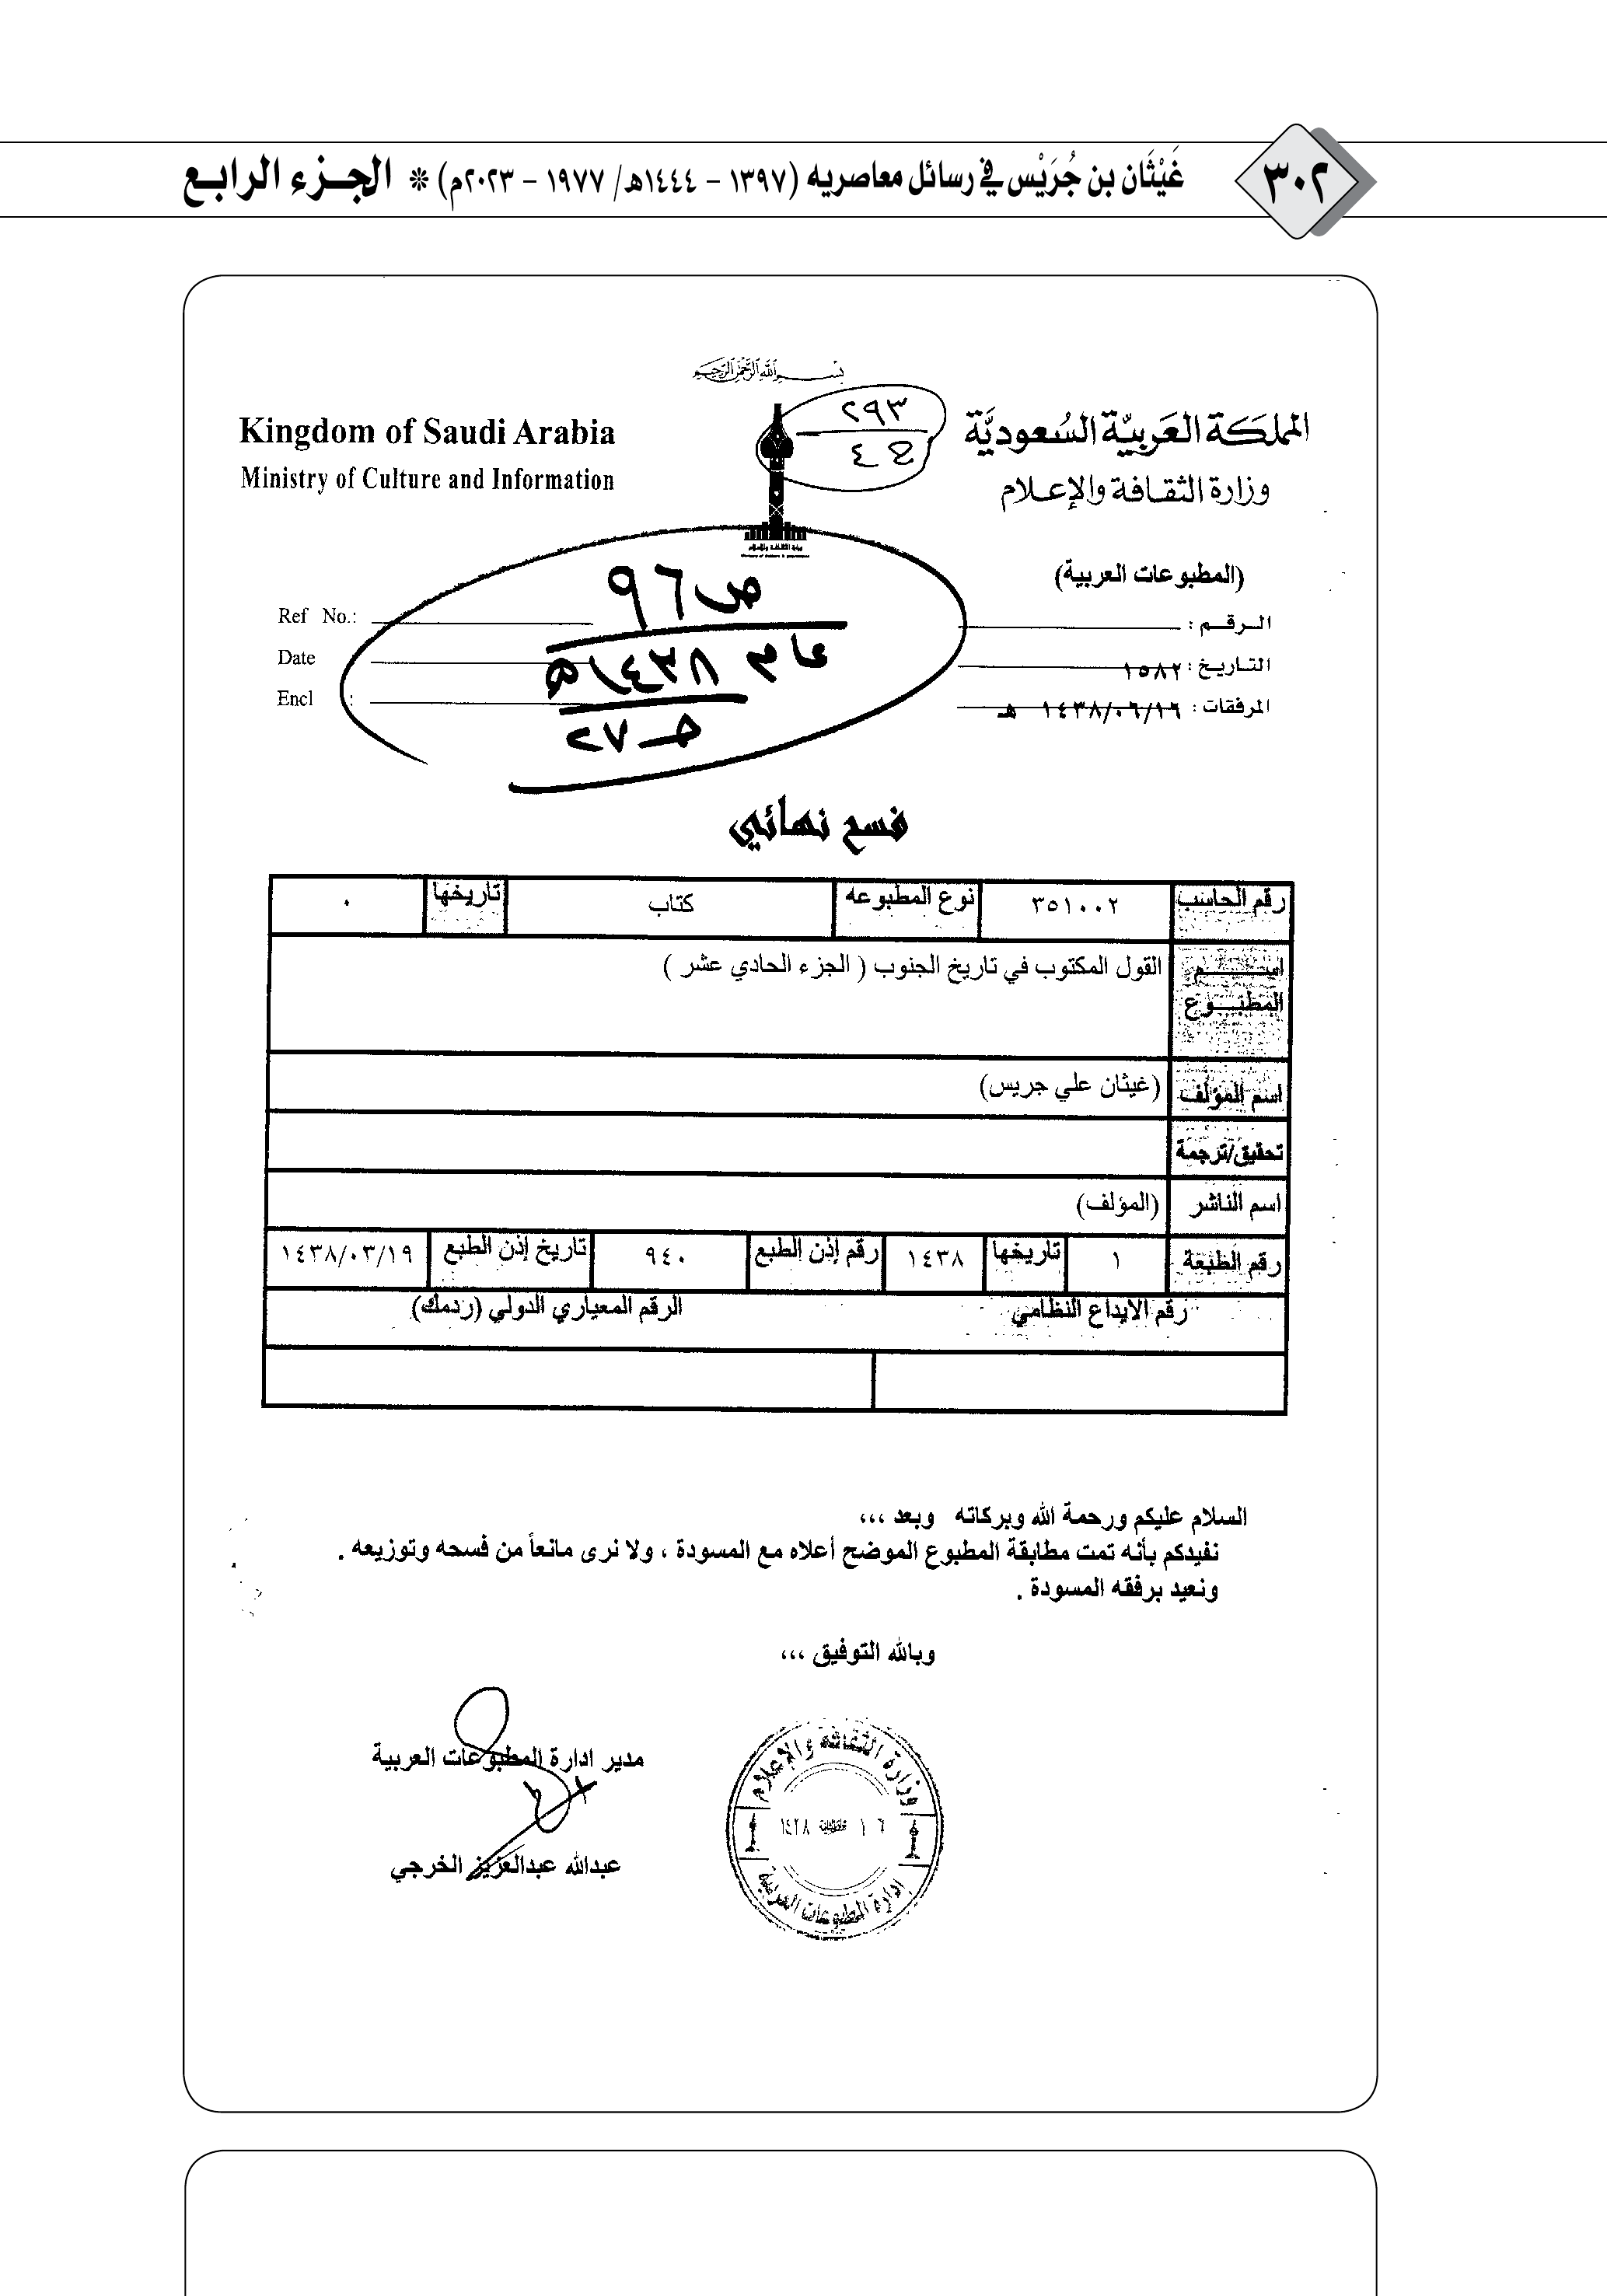 ٣٠٢
غَيْثَان بن جُرَيْس في رسائل معاصريه (١٣٩٧ - ١٤٤٤هـ/ ١٩٧٧ - ٢٠٢٣م) * الجـزء الرابـع
بسم الله الرحمن الرحيم
المملكة العربية السعودية
وزارة الثقافة والإعلام
Kingdom of Saudi Arabia
Ministry of Culture and Information
٢٩٣
(المطبوعات العربية)
الرقم :
التاريخ : ١٥٨٢
المرفقات : ١٤٣٨/٠٦/١٦ هـ
Ref No.:
Date
Encl :
ص٩٦
فسح نهائي
رقم الحاسب ٣٥١٠٠٢ نوع المطبوعه كتاب تاريخها ٠
اســـم المطبـــوع القول المكتوب في تاريخ الجنوب ( الجزء الحادي عشر )
اسم المؤلف (غيثان علي جريس)
تحقيق/ترجمة
اسم الناشر (المؤلف)
رقم الطبعة ١ تاريخها ١٤٣٨ رقم إذن الطبع ٩٤٠ تاريخ إذن الطبع ١٤٣٨/٠٣/١٩
رقم الايداع النظامي الرقم المعياري الدولي (ردمك)
السلام عليكم ورحمة الله وبركاته وبعد ،،،
نفيدكم بأنه تمت مطابقة المطبوع الموضح أعلاه مع المسودة ، ولا نرى مانعاً من فسحه وتوزيعه .
ونعيد برفقه المسودة .
وبالله التوفيق ،،،
مدير ادارة المطبوعات العربية
عبدالله عبدالعزيز الخرجي
وزارة الثقافة والإعلام
إدارة المطبوعات العربية